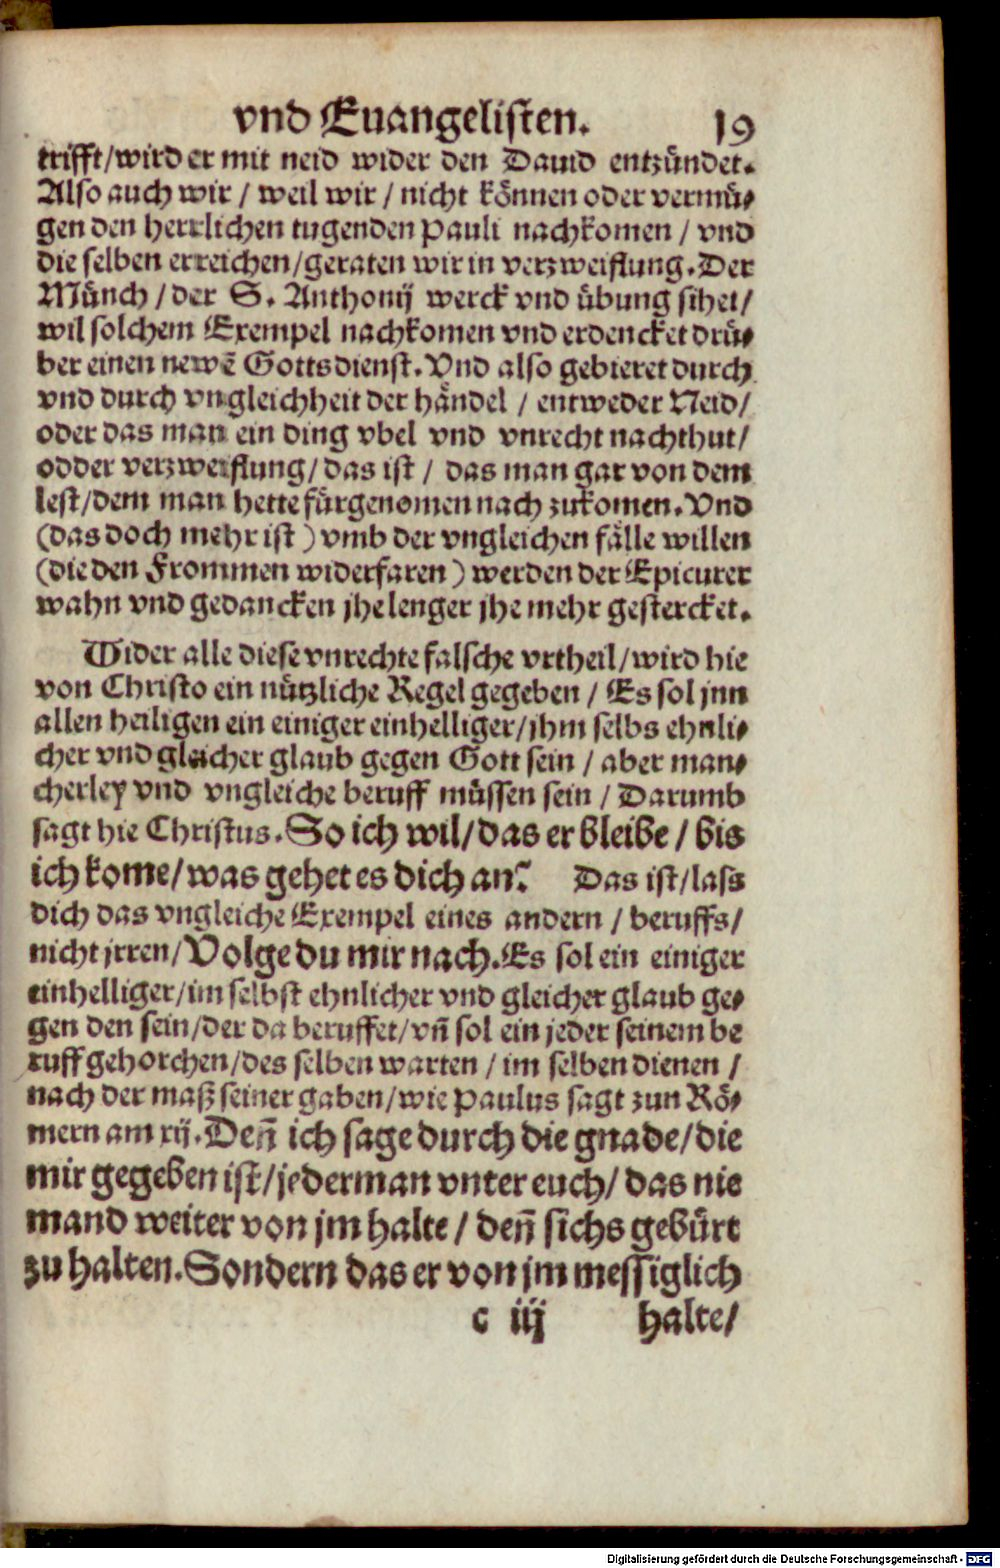 vnd Euangelisten. 19
trifft/wird er mit neid wider den Dauid entzündet.
Also auch wir / weil wir / nicht können oder vermü⸗
gen den herrlichen tugenden Pauli nachkomen / vnd
die selben erreichen/geraten wir in verzweiflung. Der
Münch / der S. Anthonij werck vnd übung sihet/
wil solchem Exempel nachkomen vnd erdencket drü⸗
ber einen newē Gottsdienst. Vnd also gebieret durch
vnd durch vngleichheit der händel / entweder Neid/
oder das man ein ding vbel vnd vnrecht nachthut/
odder verzweiflung/das ist / das man gar von dem
lest/dem man hette fürgenomen nach zukomen. Vnd
(das doch mehr ist) vmb der vngleichen fälle willen
(die den Frommen widerfaren) werden der Epicurer
wahn vnd gedancken jhe lenger jhe mehr gestercket.
Wider alle diese vnrechte falsche vrtheil/wird hie
von Christo ein nützliche Regel gegeben / Es sol jnn
allen heiligen ein einiger einhelliger/jhm selbs ehnli⸗
cher vnd gleicher glaub gegen Gott sein / aber man⸗
cherley vnd vngleiche beruff müssen sein / Darumb
sagt hie Christus. So ich wil/das er bleibe / bis
ich kome/was gehet es dich an? Das ist/lass
dich das vngleiche Exempel eines andern / beruffs/
nicht jrren/Volge du mir nach. Es sol ein einiger
einhelliger/im selbst ehnlicher vnd gleicher glaub ge⸗
gen den sein/der da beruffet/vñ sol ein jeder seinem be
ruff gehorchen/des selben warten / im selben dienen /
nach der maß seiner gaben/wie Paulus sagt zun Rö⸗
mern am xij. Deñ ich sage durch die gnade/die
mir gegeben ist/jederman vnter euch/ das nie
mand weiter von jm halte / deñ sichs gebürt
zu halten. Sondern das er von jm messiglich
c iij halte/
Digitalisierung gefördert durch die Deutsche Forschungsgemeinschaft - DFG